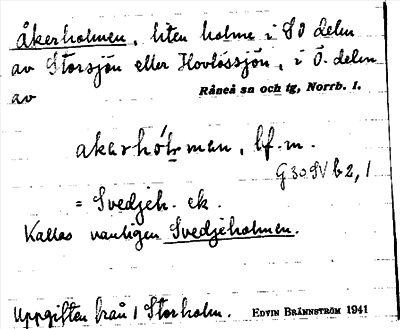 Åkerholmen, liten holme i SO delen
av Storsjön eller Hovlössjön, i Ö. delen
av Råneå sn och tg, Norrb. l.
akerhólman, bf. m.
G 30 SV b 2, 1
= Svedjeh. ek.
Kallas vanligen Svedjeholmen.
Uppgiften från 1 Storholm. EDVIN BRÄNNSTRÖM 1941